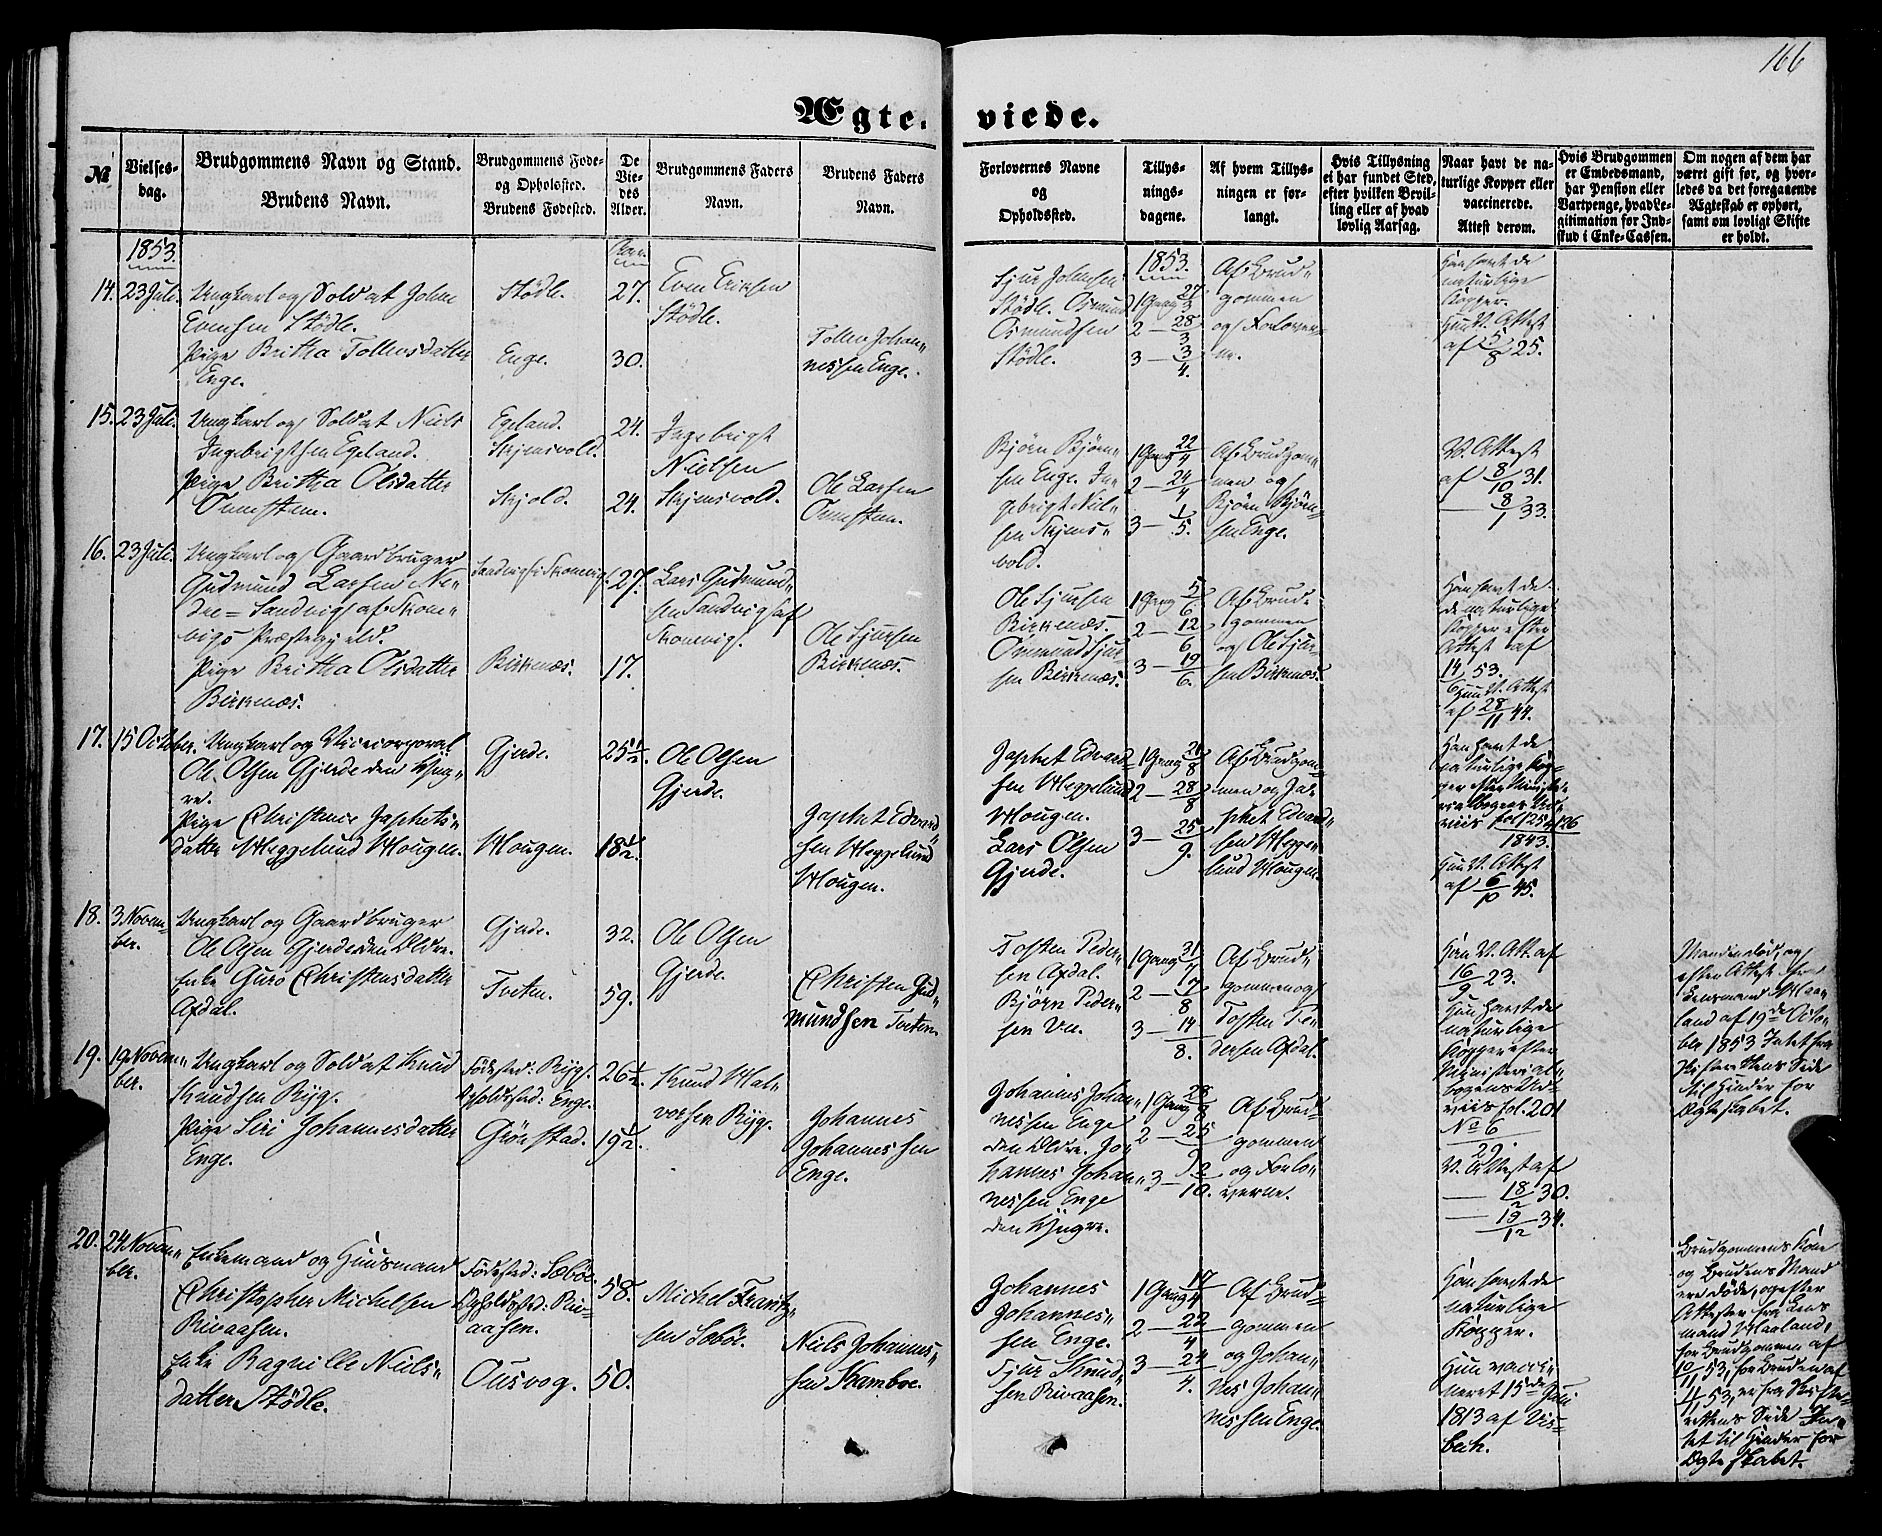 166
Ægte-viede.
№
Vielses-
dag.
Brudgommens Navn og Stand.
Brudens Navn.
Brudgommens Føde-
og Opholdsted.
Brudens Fødested.
De
Vie-
des
Alder.
Brudgommens Faders
Navn.
Brudens Faders
Navn.
Forlovernes Navne
og
Opholdssted.
Tillys-
nings-
dagene.
Af hvem Tillys-
ningen er for-
langt.
Hvis Tillysning
ei har fundet Sted,
efter hvilken Bevil-
ling eller af hvad
lovlig Aarsag.
Naar havt de na-
turlige Kopper eller
vaccinerede.
Attest derom.
Hvis Brudgommen
er Embedsmand,
har Pension eller
Vartpenge, hvad Le-
gitimation for Ind-
skud i Enke-Cassen.
Om nogen af dem har
været gift før, og hvor-
ledes da det foregaaende
Ægteskab er ophørt,
samt om lovligt Skifte
er holdt.
1853.
14. 23 Juli.
Ungkarl og Soldat John
Evensen Stødle.
Pige Britha Tollensdatter
Enge.
Stødle.
Enge.
27.
30.
Even Eriksen
Stødle.
Tollen Johan-
nessen Enge.
Sjur Johnsen
Stødle. Osmund
Osmundsen
Stødle.
1853.
1 Gang 27/3
2 — 28/3
3 — 3/4.
Af Brud-
gommen
og Forlover-
ne.
Han havt de
naturlige
Kopper.
Hun V. Attest
af 5/8 25.
15. 23 Juli.
Ungkarl og Soldat Niels
Ingebrigtsen Egeland.
Pige Britha Olsdatter
Ønnsteen.
Egeland.
Skjensvold.
Skjold.
24.
24.
Ingebrigt
Nielsen
Skjensvold.
Ole Larsen
Bjørn Bjørn-
sen Enge. In-
gebrigt Niel-
sen Skjens-
vold.
1 Gang 22/4
2 — 24/4
3 — 1/5.
Af Brudgom-
men og
Bjørn Bjørn-
sen Enge.
V. Attest
af 8/10 31.
— 8/1 33.
16. 23 Juli.
Ungkarl og Gaardbruger
Gudmund Larsen Ne-
dre-Sandvig af Skone-
vigs Præstegjeld.
Pige Britha Olsdatter
Birkenæs.
Sandvig i Skonevig.
Birkenæs.
27.
17.
Lars Gudmund-
sen Sandvig af
Skonevig.
Ole Sjursen
Birkenæs.
Ole Sjursen
Birkenæs.
Osmund Sjur-
sen Birkenæs.
1 Gang 5/6.
2 — 12/6
3 — 19/6.
Af Brud-
gommen
og Ole Sjur-
sen Birkenæs.
Han havt de
naturlige
Kopper efter
Attest af
14/6 53.
Hun V. Attest
af 28/11 44.
17. 15 October.
Ungkarl og Vicecorporal
Ole Olsen Gjerde den Yng-
re.
Pige Christence Japhets-
datter Heggelund Hougen.
Gjerde.
Hougen.
25 1/2.
18 1/2.
Ole Olsen
Gjerde.
Japhet Edvard-
sen Heggelund
Hougen.
Japhet Edvard-
sen Heggelund
Hougen.
Lars Olsen
Gjerde.
1 Gang 21/8
2 — 28/8
3 — 25/9.
Af Brudgom-
men og Ja-
phet Edvard-
sen Hegge-
lund Hougen.
Han havt de
naturlige Kop-
per efter Ministe-
rialbogens Ud-
viis fol 125 & 126
1843.
Hun V. Attest
af 6/10 45.
18. 3 Novem-
ber.
Ungkarl og Gaardbruger
Ole Olsen Gjerde den Ældre.
Enke Guro Christensdatter
Øfdal.
Gjerde.
Tveten.
32.
59.
Ole Olsen
Gjerde.
Christen Gud-
mundsen Tveten.
Tosten Peder-
sen Øfdal.
Bjørn Peder-
sen
1 Gang 31/7
2 — 17/8
3 — 14/8.
Af Brud-
gommen og
Tosten Pe-
dersen Øfdal.
Han V. Att. af
16/9 23.
Hun havt de
naturlige
Kopper efter
Ministerial-
bogens Ud-
viis fol. 201
No 6
Manden død, og
efter Attest fra
Lensmand Haa-
land af 19de Octo-
ber 1853 Intet fra
Skifterettens Side
til Hinder for
Ægteskabet.
19. 19 Novem-
ber.
Ungkarl og Soldat Knud
Knudsen Ryg.
Pige Siri Johannesdatter
Enge.
Fødested: Ryg.
Opholdsted: Enge.
Grønstad.
26 1/2.
19 1/2.
Knud Hal-
vorsen Ryg.
Johannes
Johannessen
Enge.
Johannes Johan-
nessen Enge
den Ældre. Jo-
hannes Johan-
nessen Enge
den Yngre.
1 Gang 28/8
2 — 25/9
3 — 2/10.
Af Brud-
gommen
og Forlo-
verne.
V. Attest af
— 18/2 30.
— 19/12 34.
20. 24 Novem-
ber.
Enkemand og Huusmand
Christopher Michelsen
Rivaasen.
Enke Ragnille Niels-
datter Stødle.
Fødested: Søbøe.
Opholdsted: Riv-
aasen.
Ousvog.
58.
50.
Michel Frantz-
sen Søbøe.
Niels Johannes-
sen Kamboe.
Johannes
Johannes-
sen Enge.
Sjur Knud-
sen Rivaasen.
1 Gang 17/4
2 — 22/4
3 — 24/4.
Af Brud-
gommen
og Johan-
nes Johan-
nessen Enge.
Han havt de
naturlige
Kopper.
Hun vacci-
neret 15de Juni
1813 af Vis-
bech.
Brudgommens Kone
og Brudens Mand
ere døde, og efter
Attester fra Lens-
mand Haaland,
for Brudgommen af
10/11 53, for Bruden af
4/11 53, er fra Skifte-
rettens Side In-
tet til Hinder for
Ægteskabet.